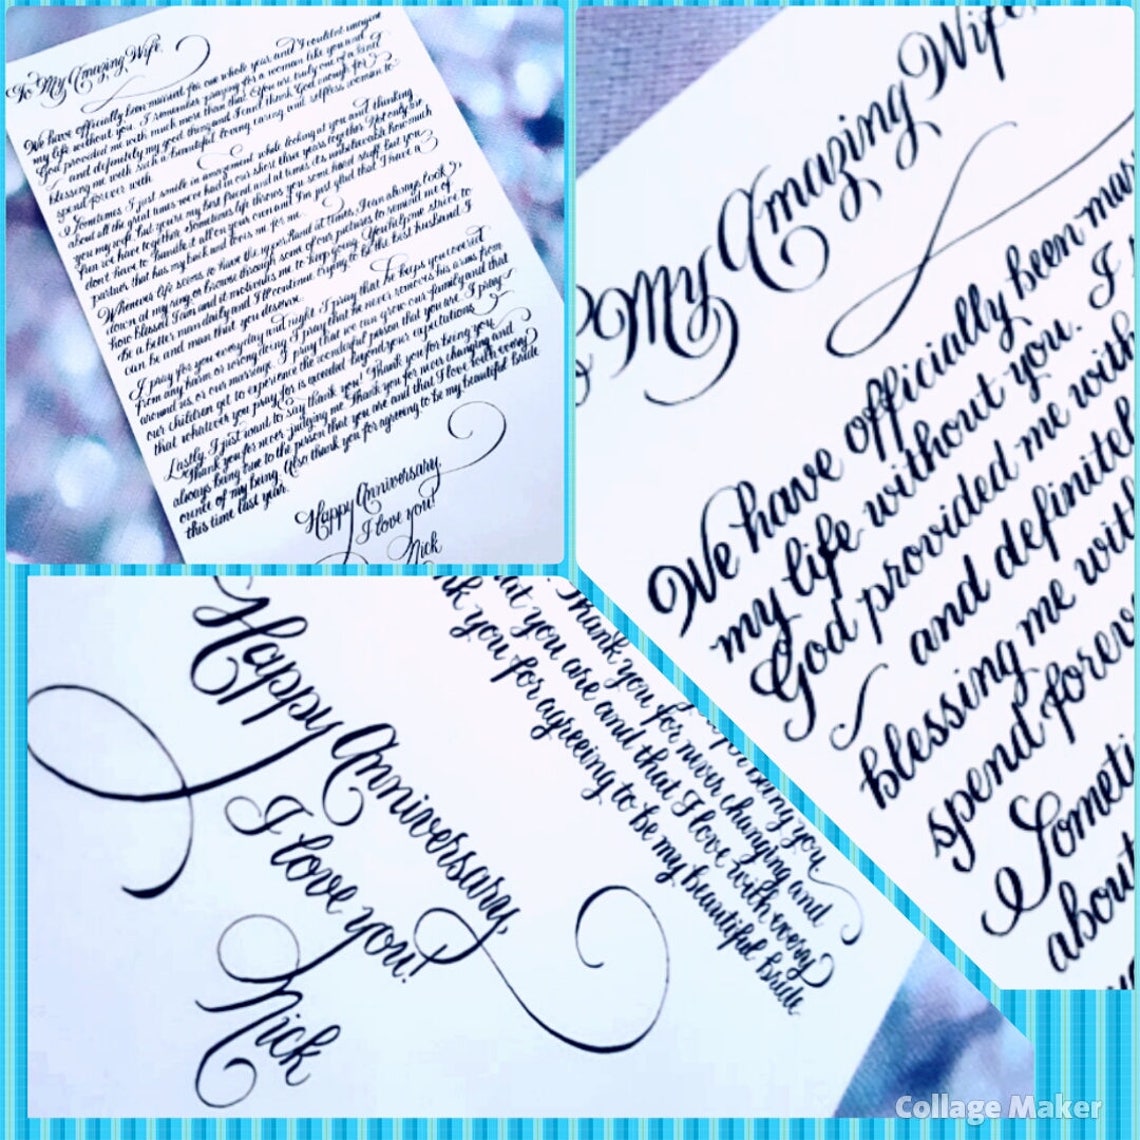 To My Amazing Wife,
We have officially been married for one whole year and I couldn't imagine
my life without you. I remember praying for a woman like you and
God provided me with much more than that. You are truly one of a kind
and definitely my good thing and I can't thank God enough for
blessing me with such a beautiful, loving, caring and selfless woman to
spend forever with.
Sometimes I just smile in amazement while looking at you and thinking
about all the great times we've had in our short three years together. Not only are
you my wife, but you're my best friend and at times, it's unbelievable how much
fun we have together. Sometimes life throws you some hard stuff, but you
don't have to handle it all on your own and I'm just glad that I have a
partner that has my back and loves me for me.
Whenever life seems to have the upper hand at times, I can always look
down at my ring or browse through some of our pictures to remind me of
how blessed I am and it motivates me to keep going. You help me strive to
be a better man daily and I'll continue trying to be the best husband I
can be and man that you deserve.
I pray for you everyday and night. I pray that he keeps you covered
from any harm or wrong doing. I pray that he never removes his arms from
around us, or our marriage. I pray that we can grow our family and that
our children get to experience the wonderful person that you are. I pray
that whatever you pray for is exceeded beyond your expectations.
Lastly, I just want to say thank you! Thank you for being you.
Thank you for never judging me. Thank you for never changing and
always being true to the person that you are and that I love with every
ounce of my being. Also thank you for agreeing to be my beautiful bride
this time last year.
Happy Anniversary,
I love you!
Nick
My Amazing Wife,
We have officially been mar
my life without you. I
God provided me with
and definitel
blessing me wit
spend forev
Someti
about
being you
Thank you for never changing and
at you are and that I love with every
nk you for agreeing to be my beautiful bride
Happy Anniversary,
I love you!
Nick
Collage Maker